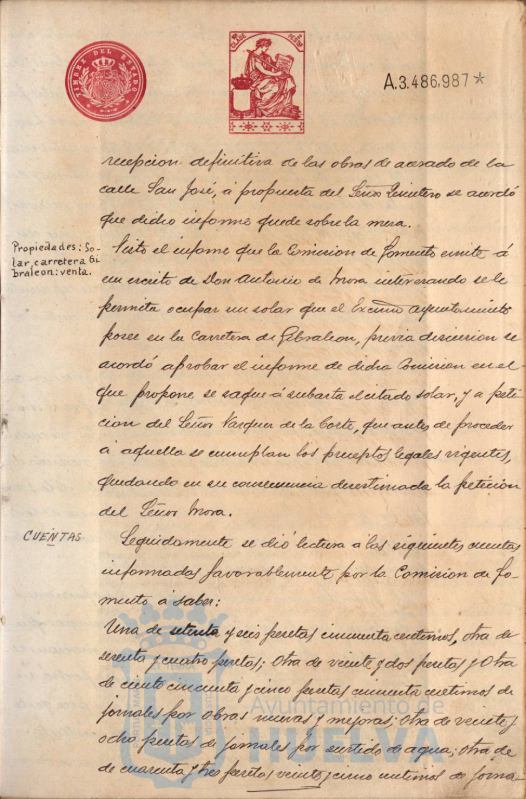 TIMBRE DEL ESTADO
A.3.486,987*
recepcion definitiva de las obras de acerado de la
calle San José, á propuesta del Señor Quintero se acordó
que dicho informe quede sobre la mesa.
Propiedades: So-
lar, carretera Gi-
braleon: venta.
Visto el informe que la Comision de Fomento emite á
un escrito de Don Antonio de Mora interesando se le
permita ocupar un solar que el Excmo Ayuntamiento
posee en la Carretera de Gibraleon, previa discusion se
acordó aprobar el informe de dicha Comision en el
que propone se saque á subasta el citado solar, y a peti
cion del Señor Vazquez de la Corte, que antes de proceder
á aquella se cumplan los preceptos legales vigentes,
quedando en su consecuencia desestimada la peticion
del Señor Mora.
CUENTAS
Seguidamente se dió lectura á las siguientes cuentas
informadas favorablemente por la Comision de Fo-
mento á saber:
Una de setenta y seis pesetas cincuenta centimos, otra de
sesenta y cuatro pesetas; Otra de veinte y dos pesetas y Otra
de ciento cincuenta y cinco pesetas cincuenta centimos de
jornales por obras nuevas y mejoras; otra de veinte y
ocho pesetas de jornales por surtido de agua; otra de
de cuarenta y tres pesetas veinte y cinco centimos de jorna-
Ayuntamiento de
HUELVA